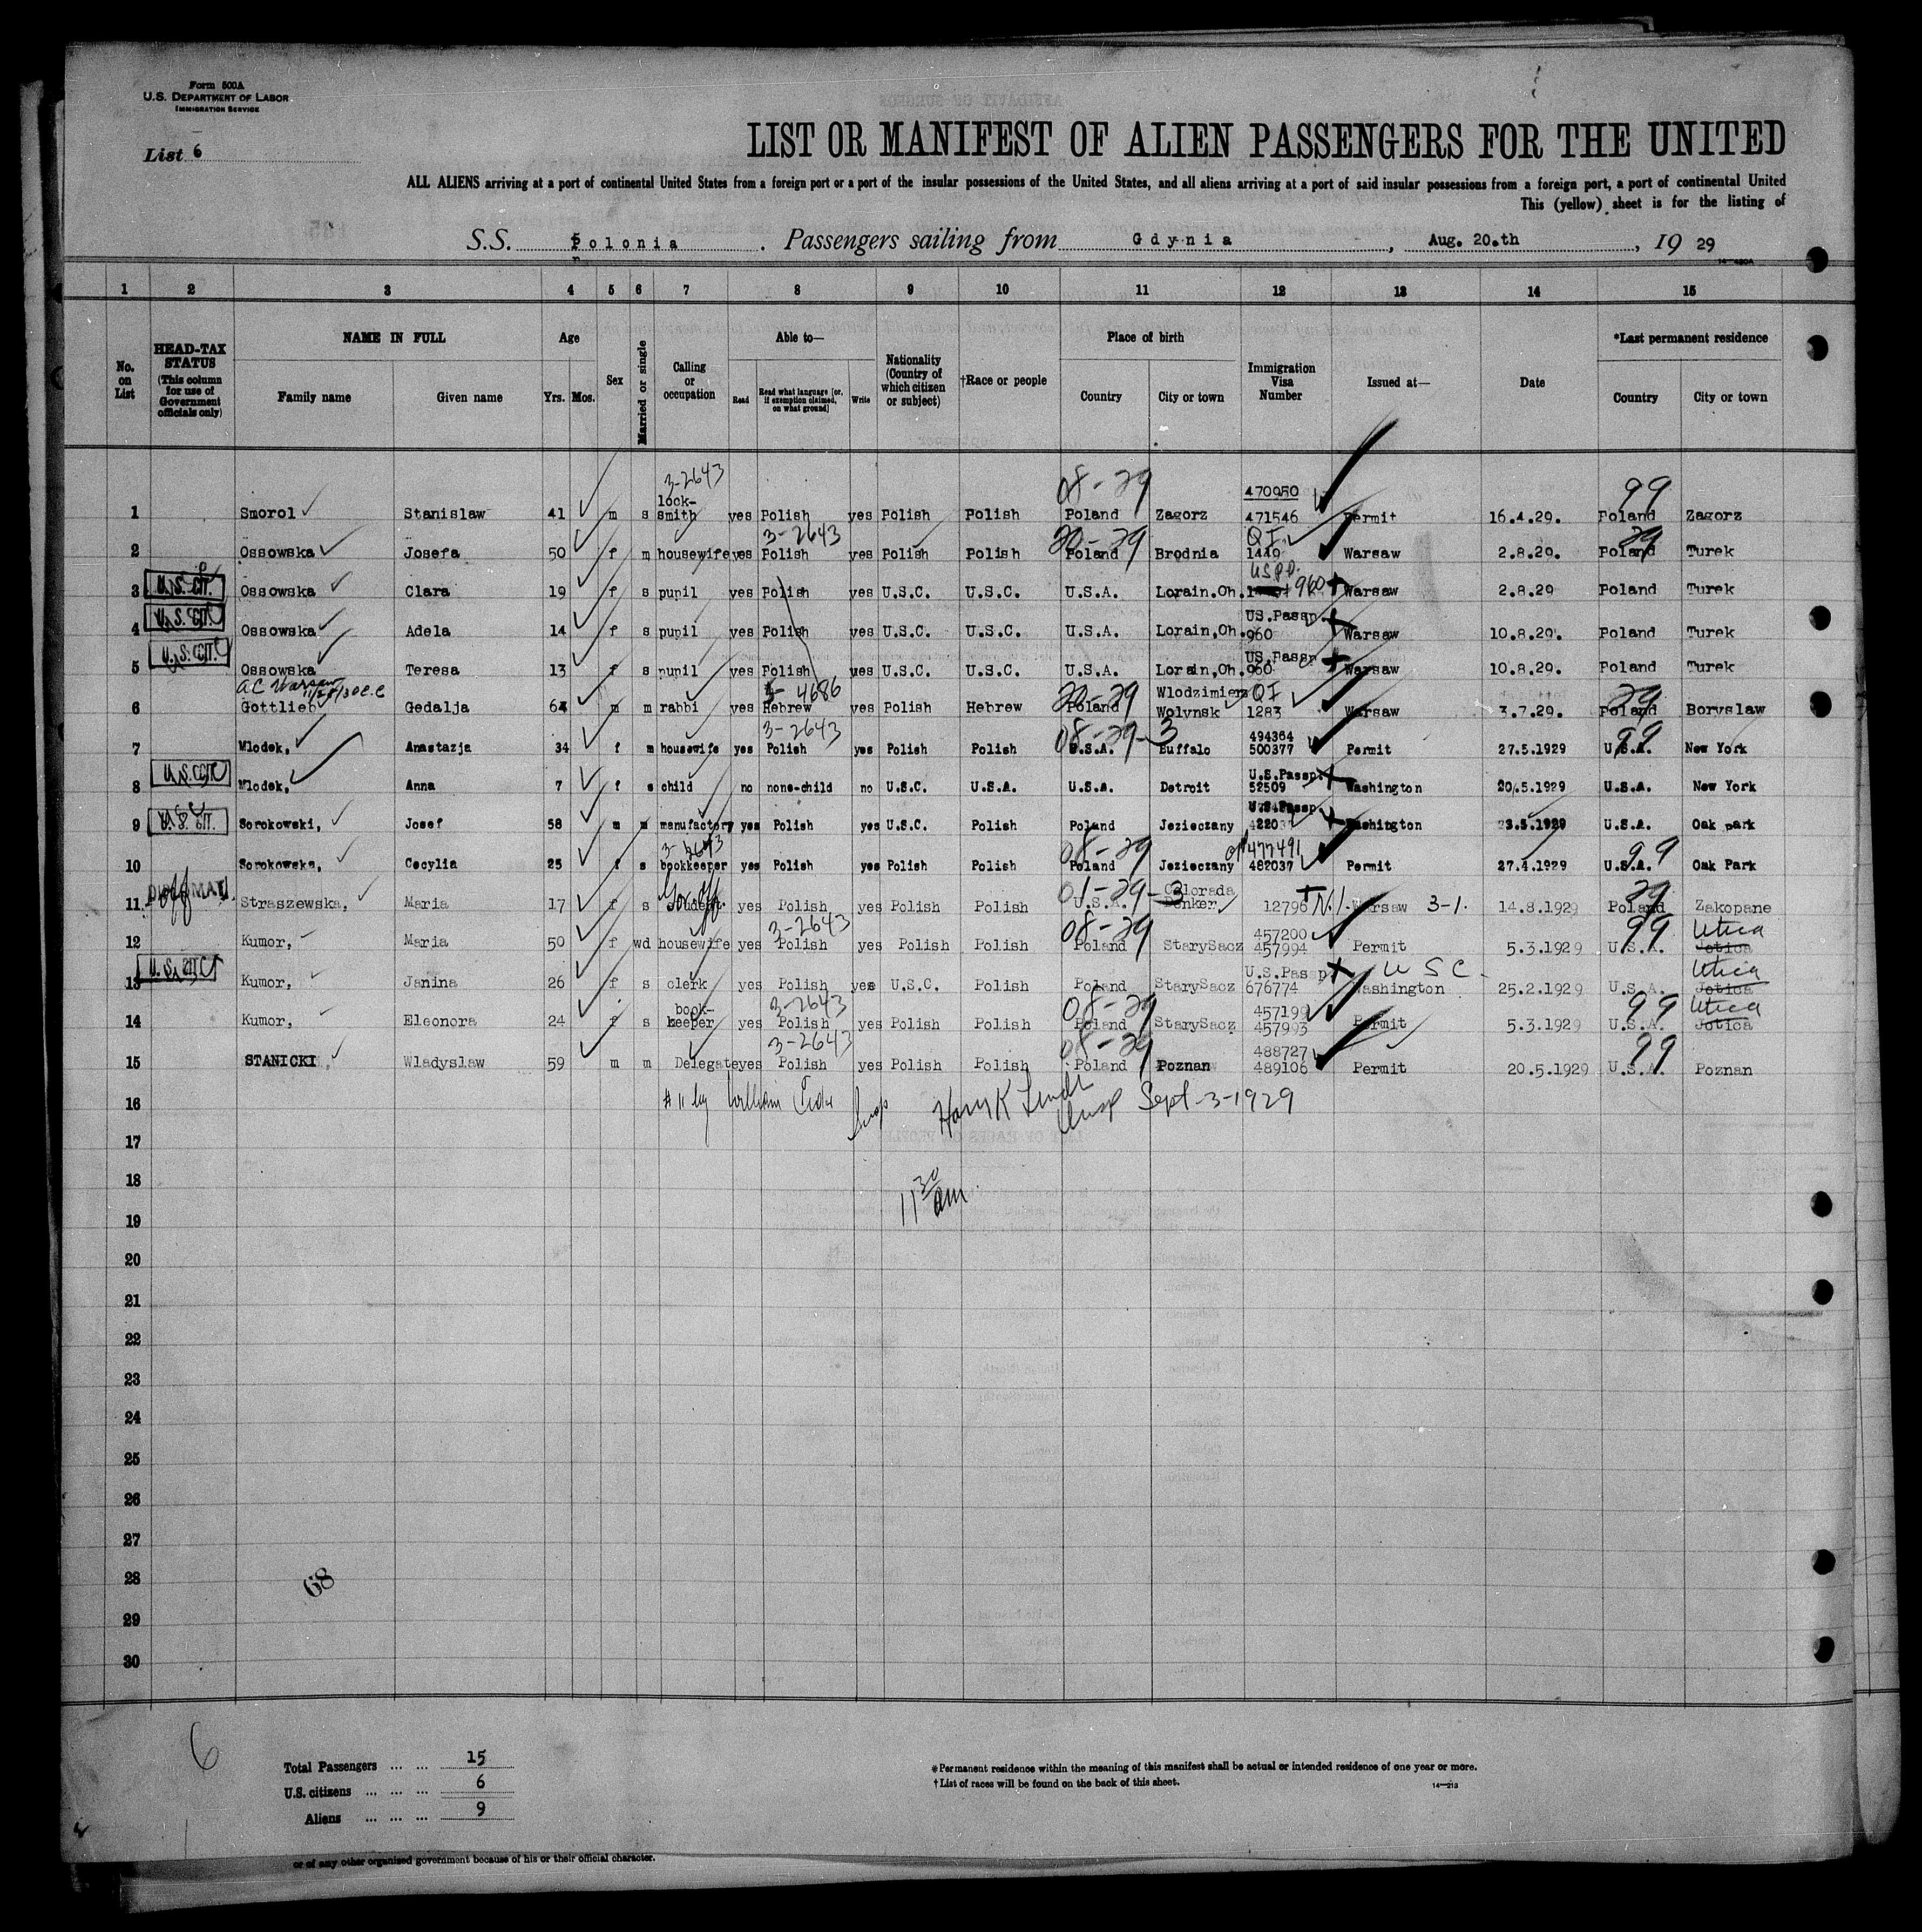 Form 500A
U.S. DEPARTMENT OF LABOR
IMMIGRATION SERVICE
List 6
LIST OR MANIFEST OF ALIEN PASSENGERS FOR THE UNITED
ALL ALIENS arriving at a port of continental United States from a foreign port or a port of the insular possessions of the United States, and all aliens arriving at a port of said insular possessions from a foreign port, a port of continental United
This (yellow) sheet is for the listing of
S.S. Polonia. Passengers sailing from Gdynia, Aug. 20.th, 19 29
1 2 3 4 5 6 7 8 9 10 11 12 13 14 15
No. on List
HEAD-TAX STATUS (This column for use of Government officials only)
NAME IN FULL
Family name Given name
Age
Yrs. Mos.
Sex
Married or single
Calling or occupation
Able to—
Read Read what language (or, if exemption claimed, on what ground) Write
Nationality (Country of which citizen or subject)
†Race or people
Place of birth
Country City or town
Immigration Visa Number
Issued at—
Date
*Last permanent residence
Country City or town
3-2643 08-29 470950 99
1 Smorol Stanislaw 41 m s lock-smith yes Polish yes Polish Polish Poland Zagorz 471546 Permit 16.4.29. Poland Zagorz
3-2643 20-29 QI 29
2 Ossowska Josefa 50 f m housewife yes Polish yes Polish Polish Poland Brodnia 1449 Warsaw 2.8.29. Poland Turek
U.S. CIT.
3 Ossowska Clara 19 f s pupil yes Polish yes U.S.C. U.S.C. U.S.A. Lorain.Oh. 960 Warsaw 2.8.29 Poland Turek
U.S. CIT.
4 Ossowska Adela 14 f s pupil yes Polish yes U.S.C. U.S.C. U.S.A. Lorain,Oh. US.Passp. 960 Warsaw 10.8.29. Poland Turek
U.S. CIT.
5 Ossowska Teresa 13 f s pupil yes Polish yes U.S.C. U.S.C. U.S.A. Lorain,Oh. US.Passp. 960 Warsaw 10.8.29. Poland Turek
5-4686 20-29 QI 29
6 Gottlieb Gedalja 64 m m rabbi yes Hebrew yes Polish Hebrew Poland Wlodzimierz Wolynsk 1283 Warsaw 3.7.29. Poland Boryslaw
3-2643 08-29-3 494364 99
7 Mlodek, Anastazja 34 f m housewife yes Polish yes Polish Polish U.S.A. Buffalo 500377 Permit 27.5.1929 U.S.A. New York
U.S. CIT.
8 Mlodek, Anna 7 f s child no none-child no U.S.C. U.S.A. U.S.A. Detroit U.S.Passp. 52509 Washington 20.5.1929 U.S.A. New York
U.S. CIT.
9 Sorokowski, Josef 58 m m manufactory yes Polish yes U.S.C. Polish Poland Jezieczany U.S.Passp. Washington 23.5.1929 U.S.A. Oak park
3-2643 08-29 477491 99
10 Sorokowska, Cecylia 25 f s bookkeeper yes Polish yes Polish Polish Poland Jezieczany 482037 Permit 27.4.1929 U.S.A. Oak Park
DIPLOMAT 01-29-3 Colorada 29
11 Straszewska, Maria 17 f s student yes Polish yes Polish Polish U.S.A. Denker 12796 Warsaw 3-1. 14.8.1929 Poland Zakopane
3-2643 08-29 457200 99 Utica
12 Kumor, Maria 50 f wd housewife yes Polish yes Polish Polish Poland StarySacz 457994 Permit 5.3.1929 U.S.A. Jotica
U.S. CIT. U.S.Passp. U S C. Utica
13 Kumor, Janina 26 f s clerk yes Polish yes U.S.C. Polish Poland StarySacz 676774 Washington 25.2.1929 U.S.A. Jotica
3-2643 08-29 457199 99 Utica
14 Kumor, Eleonora 24 f s book-keeper yes Polish yes Polish Polish Poland StarySacz 457993 Permit 5.3.1929 U.S.A. Jotica
3-2643 08-29 488727 99
15 STANICKI, Wladyslaw 59 m m Delegate yes Polish yes Polish Polish Poland Poznan 489106 Permit 20.5.1929 U.S.A. Poznan
16 # 11 by William Insp Sept-3-1929
17
18
11 30 am
19
20
21
22
23
24
25
26
27
28
68
29
30
6
Total Passengers ... ... 15
U.S. citizens ... ... ... 6
Aliens ... ... ... 9
*Permanent residence within the meaning of this manifest shall be actual or intended residence of one year or more.
†List of races will be found on the back of this sheet.
14—213
or of any other organized government because of his or their official character.